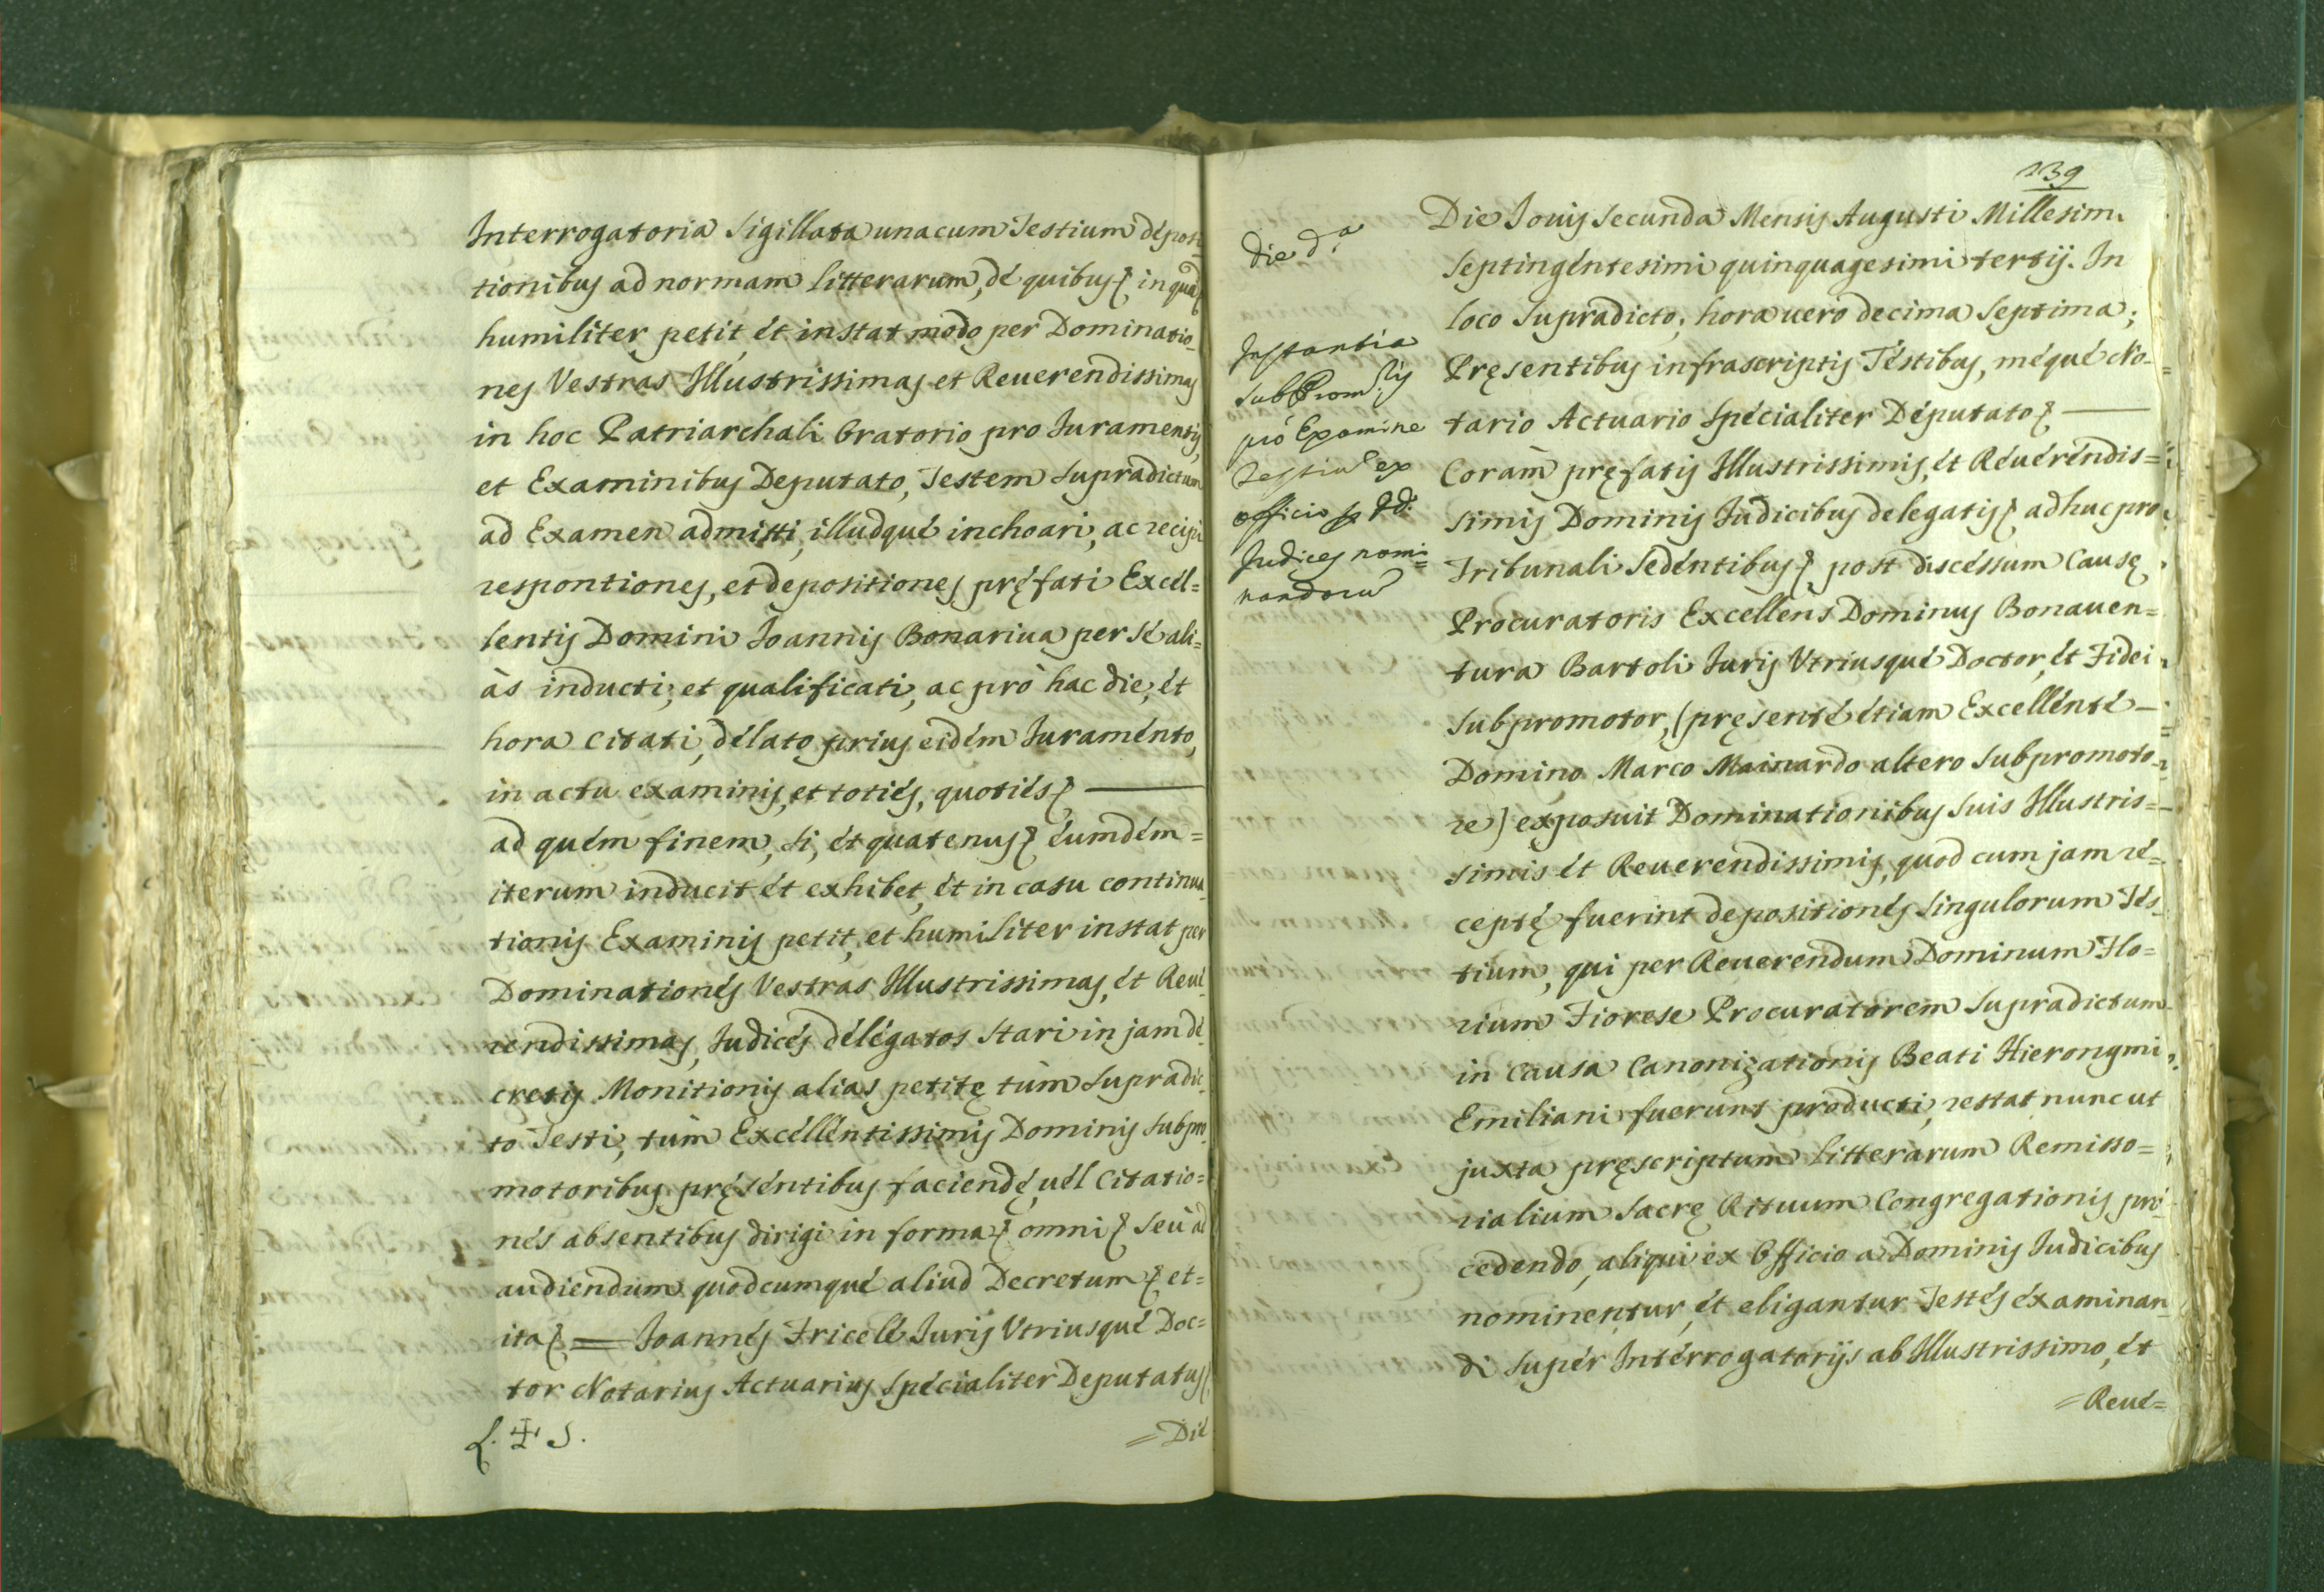 Interrogatoria Sigillata unacum Testium déposi
tionibus ad normam Litterarum, dé quibus in qua
humiliter petit, ét instat modo per Dominatio-
nes Vestras Illustrissimas et Reuerendissimas
in hoc Patriarchali Oratorio pro Iuramentis,
et Examinibus Deputato, Testem supradictum
ad Examen admitti, illudqué inchoari, ac recipi
respontiones, et depositiones pręfati Excél=
lentis Domini Ioannis Bonariua per sé ali=
às inducti, et qualificati, ac prò hac die, ét
hora citati, délato prius eidém Iuraménto,
in actu examinis, et totiés, quotiés
ad quém finem, si, ét quatenus éumdém=
iterum inducit ét exhibet, ét in casu continua
tionis Examinis petit, et humiliter instat per
Dominationés Vestras Illustrissimas, ét Reué
rendissimas, Iudicés délégatos stari in jam dé
cretis Monitionis alias petitę tùm supradic-
to Testi, tùm Excéllentissimis Dominis subpro
motoribus pręséntibus faciendę, uél Citatio=
nés absentibus dirigi in forma omni seù ad
audiendum quodcumqué aliud Decretum et=
ita Ioannés Fricelé Iuris Vtriusqué Doc=
tor Notarius Actuarius spécialiter Deputatus
L. ☩ S.
=Dié
139
die d.ª
Instantia
sub Prom.ris
prò Examine
Testiu ex
officio p dd.
Iudices nomi=
nandoru
Die Iouis secunda Mensis Augusti Millesimi
septingéntesimi quinquagesimi tertij. In
loco supradicto, hora uero decima septima;
Pręsentibus infrascriptis Téstibus, méqué No=
tario Actuario spécialiter Députato
Coràm pręfatis Illustrissimis, ét Réuéréndis=
simis Dominis Iudicibus delegatis adhuc pro
Tribunali sedéntibus post discéssum Causę
Procuratoris Excellens Dominus Bonauen=
tura Bartoli Iuris Vtriusqué Doctor, ét Fidei
subpromotor, (pręsenté étiam Excellénté
Domino Marco Mainardo altero subpromoto-
re) exposuit Dominationibus suis Illustris=
simis ét Reuerendissimis, quod cum jam ré=
ceptę fuerint depositionés singulorum Tés-
tium, qui per Reuerendum Dominum Flo=
rium Fiorese Procuratorem supradictum
in causa Canonizationis Beati Hieronymi
Emiliani fuerunt producti, restat nunc ut
juxta pręscriptum Litterarum Remisso=
rialium sacrę Rituum Congregationis prò
cedendo, aliqui ex Officio a Dominis Iudicibus
nominentur, ét eligantur Testés éxaminan
di supér Intérrogatorijs ab Illustrissimo, ét
=Reué=